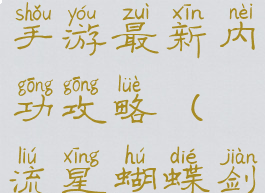 shǒu yóu zuì xīn nèi
手游最新内
gōng gōng lüè
功攻略（
liú xīng hú dié jiàn
流星蝴蝶剑